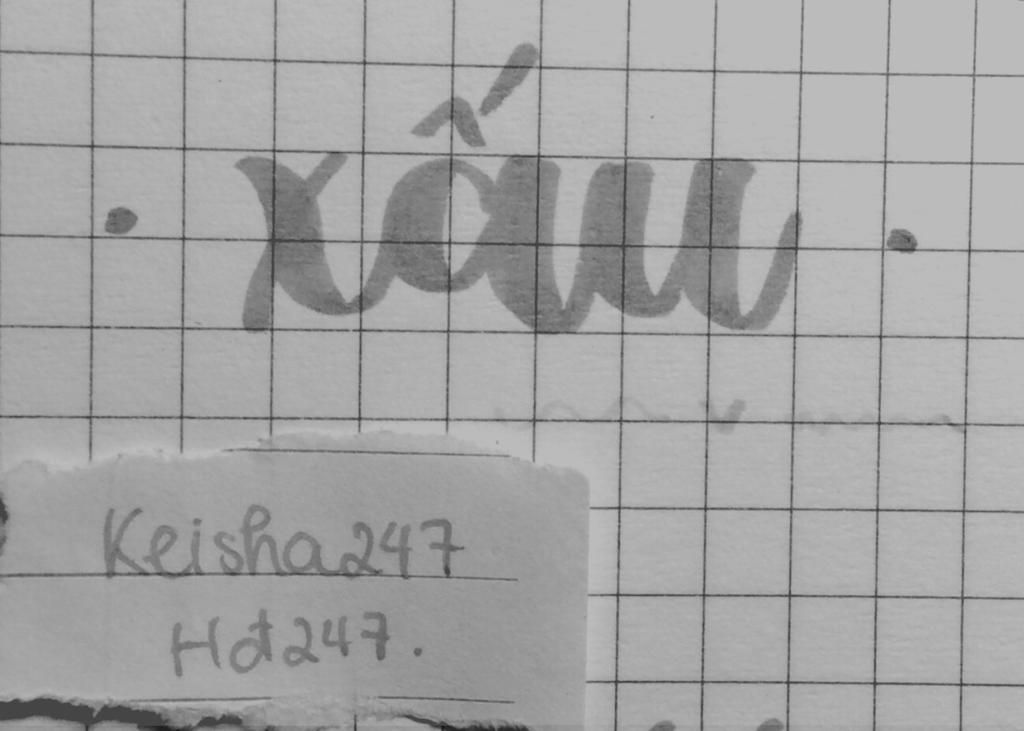 • xấu •
Keisha247
Hđ247.